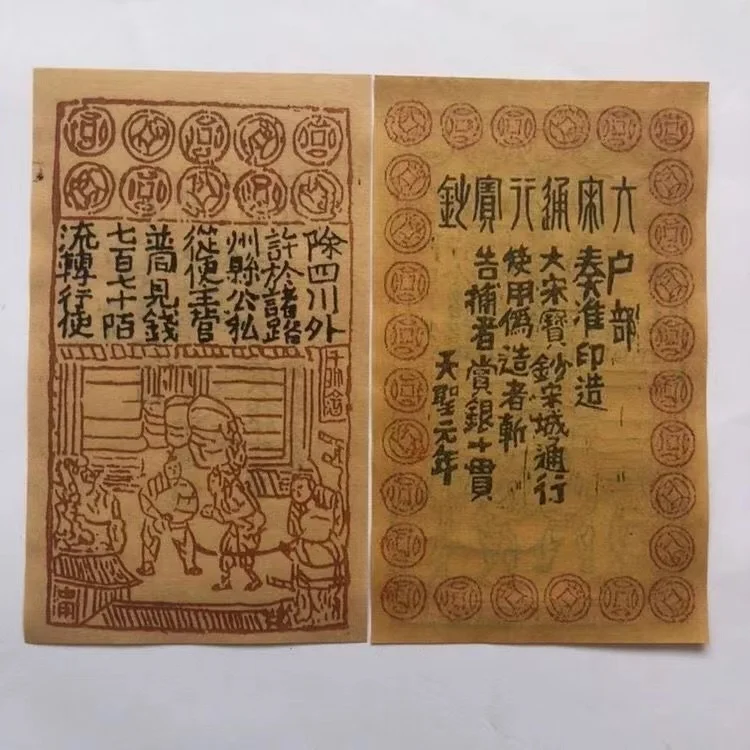 除四川外
許於諸路
州縣公私
從便主管
普同見錢
七百七十陌
流轉行使
大宋通行寶鈔
户部
奏准印造
大宋寶鈔宋城通行
使用偽造者斬
告捕者賞銀十貫
天聖元年